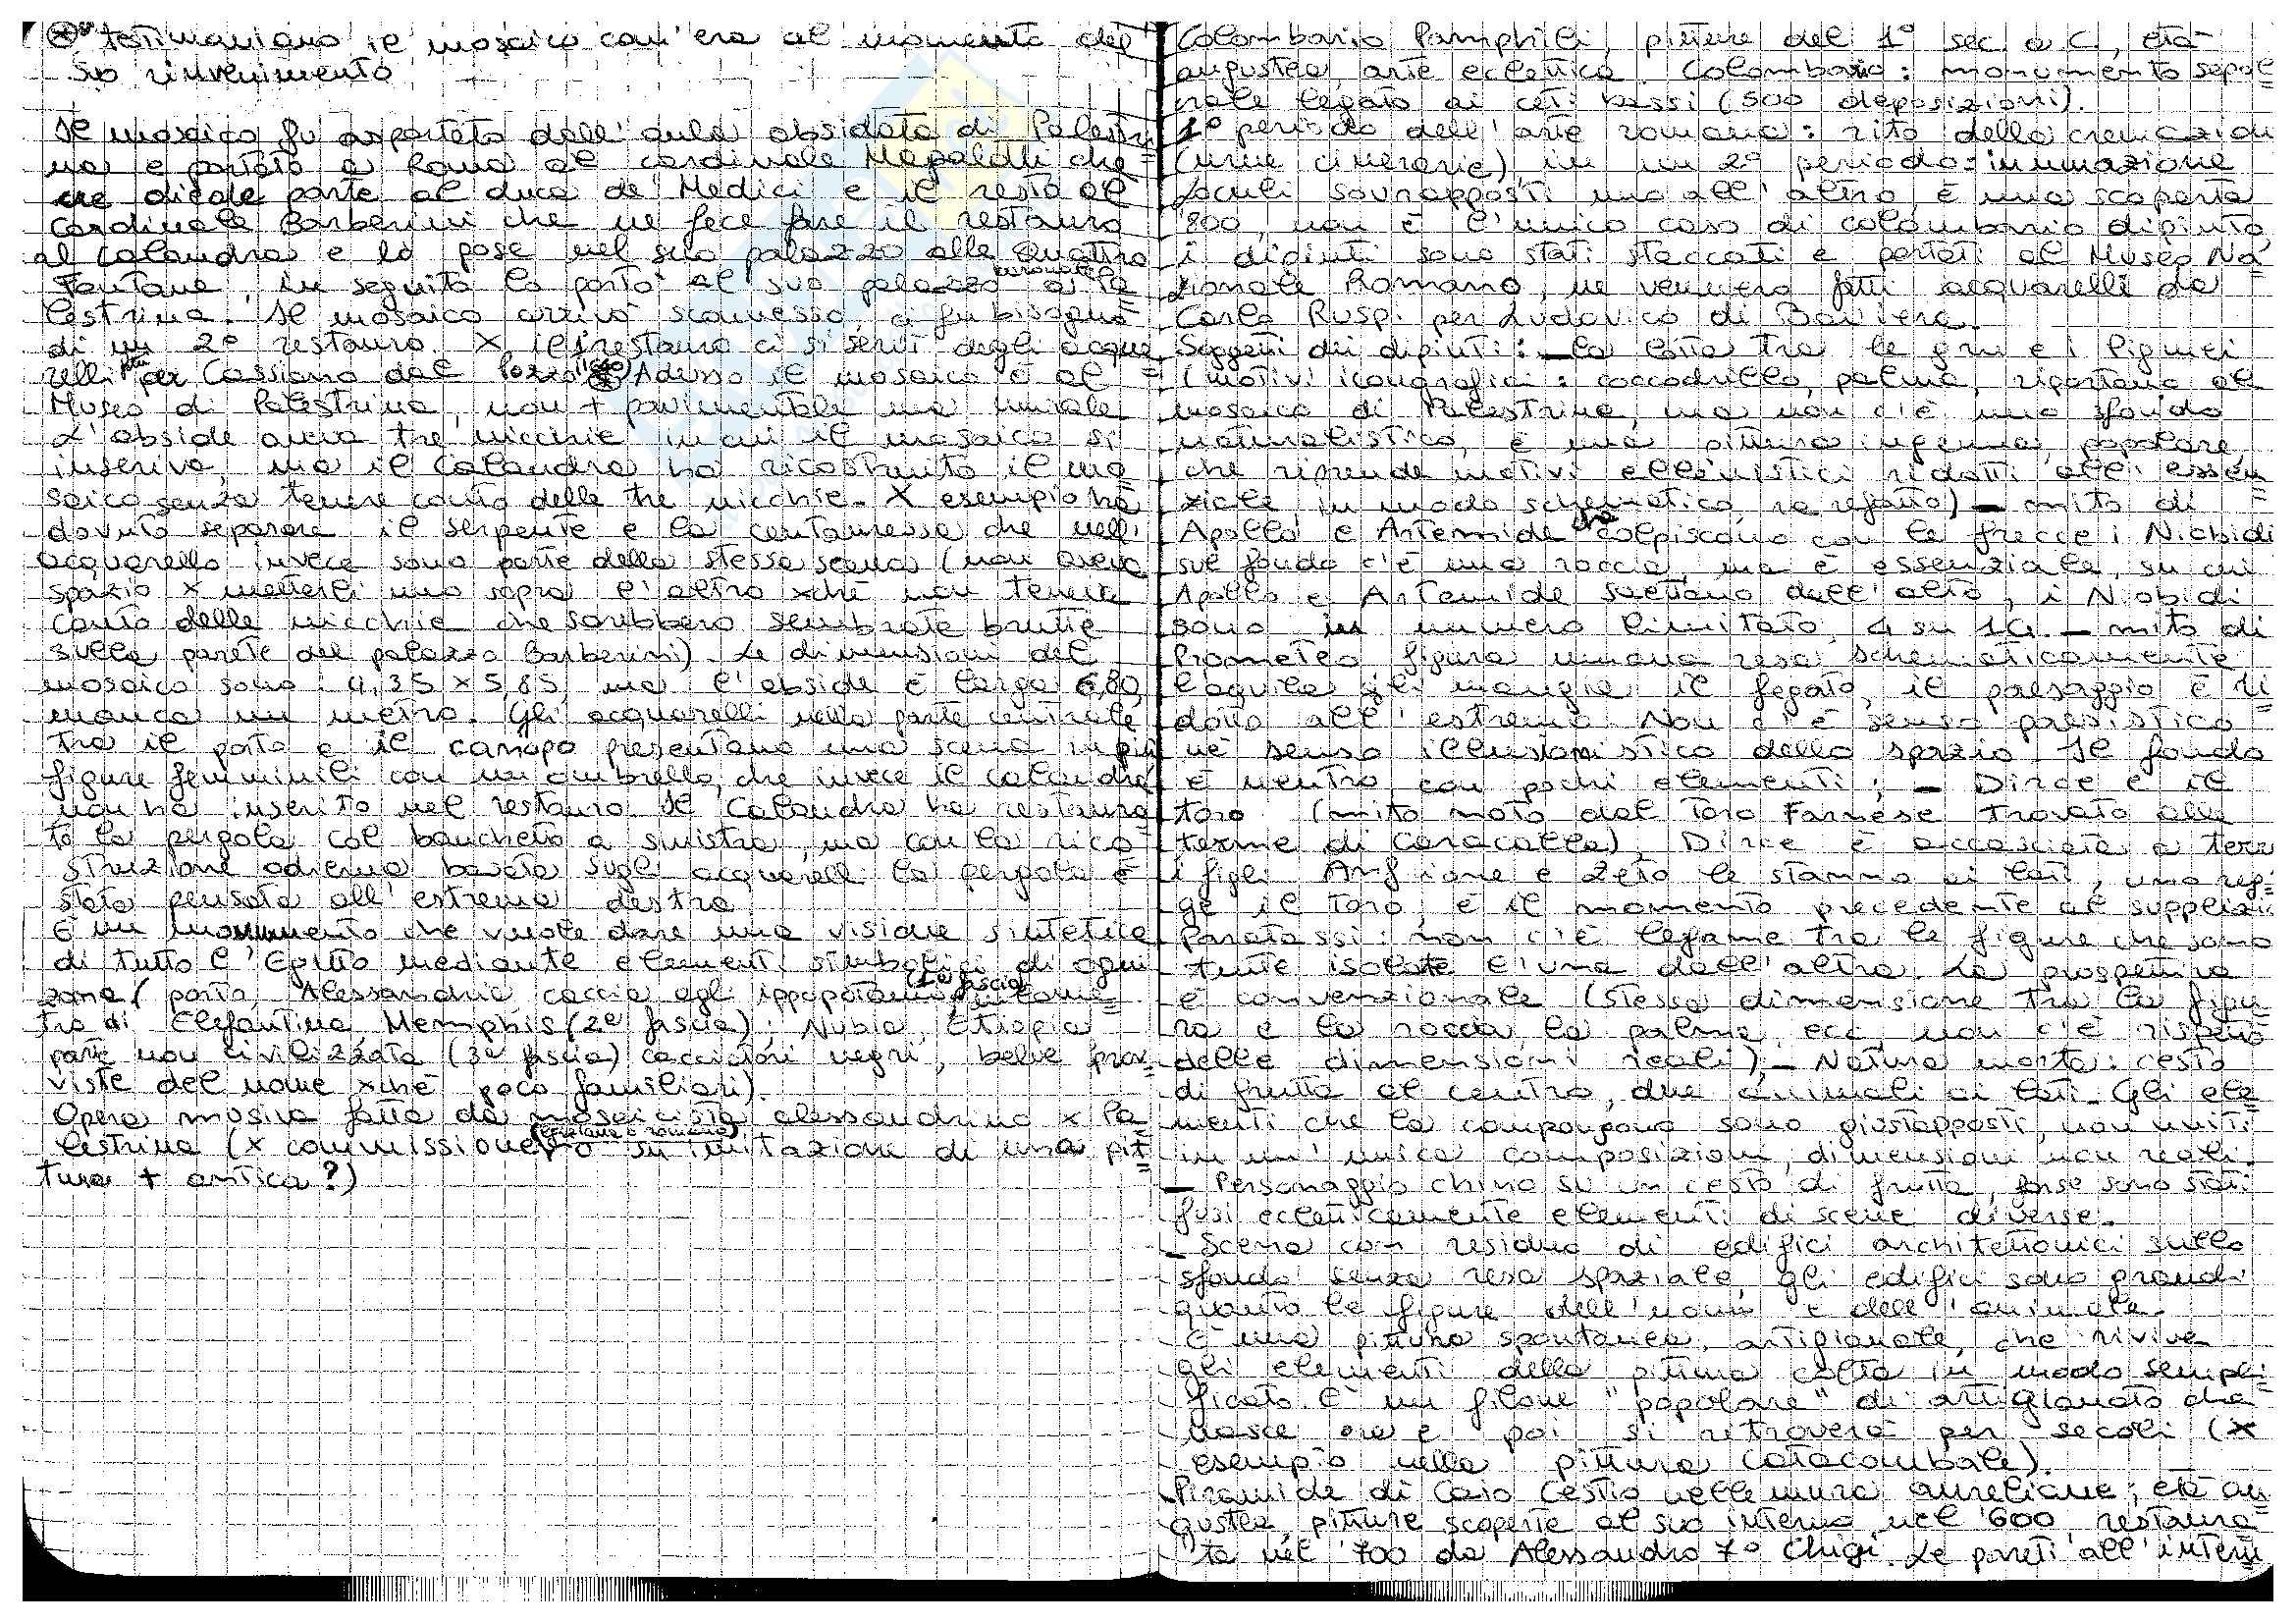 testimoniano il mosaico com'era al momento del
suo rinvenimento
Il mosaico fu asportato dall'aula absidata di Palestri
na e portato a Roma al cardinale Magalotti che
ne diede parte al duca de' Medici e il resto al
Cardinale Barberini che ne fece fare il restauro
al Calandra e lo pose nel suo palazzo alle Quattro
Fontane, in seguito lo portò al suo palazzo di Pa
lestrina. Il mosaico arrivò sconnesso, ci fu bisogno
di un 2° restauro. X il restauro ci si servì degli acque
relli per Cassiano dal Pozzo Adesso il mosaico è al
Museo di Palestrina, non + pavimentale ma murale
L'abside aveva tre nicchie in cui il mosaico si
inseriva, ma il Calandra ha ricostruito il mo
saico senza tenere conto delle tre nicchie. X esempio ha
dovuto separare il serpente e la centauressa che nell'
acquarello invece sono parte della stessa scena (non aveva
spazio x metterli uno sopra l'altro xchè non teneva
conto delle nicchie che sarebbero sembrate brutte
sulla parete del palazzo Barberini). Le dimensioni del
mosaico sono: 4,35 x 5,85, ma l'abside è larga 6,80,
manca un metro. Gli acquarelli nella parte centrale
tra il porto e il canopo presentano una scena in più
figure femminili con un ombrello, che invece il Calandra
non ha inserito nel restauro. Il Calandra ha restaura
to la pergola col banchetto a sinistra, ma con la rico
struzione odierna basata sugli acquarelli la pergola è
stata pensata all'estrema destra
È un monumento che vuole dare una visione sintetica
di tutto l'Egitto mediante elementi simbolici di ogni
zona (porto, Alessandria caccia agli ippopotami (1a fascia)
tro di Elefantina Memphis (2a fascia); Nubia, Etiopia
parte non civilizzata (3a fascia) cacciatori negri, belve prov
viste del nome xchè poco familiari).
Opera musiva fatta da mosaicista alessandrino x Pa
lestrina (x commissione o su imitazione di una pit
tura + antica?)
Colombario Pamphili, pitture del 1° sec. a.C., età
augustea, arte eclettica. Colombario: monumento sepol
crale legato ai ceti bassi (500 deposizioni).
1° periodo dell'arte romana: rito della cremazion
(urne cinerarie), in un 2° periodo: inumazione
Loculi sovrapposti uno all'altro, è una scoperta
'800, non è l'unico caso di colombario dipinto,
i dipinti sono stati staccati e portati al Museo Na
zionale Romano, ne vennero fatti acquarelli da
Carlo Ruspi per Ludovico di Baviera.
Soggetti dei dipinti: - la lotta tra le gru e i Pigmei
(motivi iconografici: coccodrillo, palma, riportano al
mosaico di Palestrina, ma non c'è uno sfondo
naturalistico, è una pittura ingenua, popolare,
che riprende motivi ellenistici ridotti all'essen
ziale in modo schematico, rarefatto) - mito di
Apollo e Artemide che colpiscono con le frecce i Niobidi
sul fondo c'è una roccia, ma è essenziale, su cui
Apollo e Artemide saettano dall'alto, i Niobidi
sono in numero limitato, 4 su 14. - mito di
Prometeo figura umana resa schematicamente
l'aquila gli mangia il fegato, il paesaggio è ri
dotto all'estremo. Non c'è senso paesistico
nè senso illusionistico dello spazio. Il fondo
è neutro, con pochi elementi; - Dirce e il
toro (mito noto dal Toro Farnese trovato alle
terme di Caracalla). Dirce è accasciata a terra
i figli Anfione e Zeto le stanno ai lati, uno reg
ge il toro, è il momento precedente al supplizio
Paratassi: non c'è legame tra le figure che sono
tutte isolate l'una dall'altra. La prospettiva
è convenzionale (stessa dimensione tra la figu
ra e la roccia, la palma, ecc, non c'è rispetto
delle dimensioni reali) - Natura morta: cesto
di frutta al centro, due animali ai lati. Gli ele
menti che la compongono sono giustapposti, non uniti
in un'unica composizione, dimensioni non reali.
- Personaggio chino su un cesto di frutta, forse sono stati
fusi ecletticamente elementi di scene diverse.
- Scena con residuo di edifici architettonici sullo
sfondo senza resa spaziale, gli edifici sono grandi
quanto le figure dell'uomo e dell'animale.
È una pittura spontanea, artigianale, che rivive
gli elementi della pittura colta in modo sempli
ficato. È un filone "popolare" di artigianato che
nasce ora e poi si ritroverà per secoli (x
esempio nella pittura catacombale).
Piramide di Caio Cestio nelle mura aureliane, età au
gustea, pitture scoperte al suo interno nel '600 restaura
te nel '700 da Alessandro 7° Chigi. Le pareti all'intern